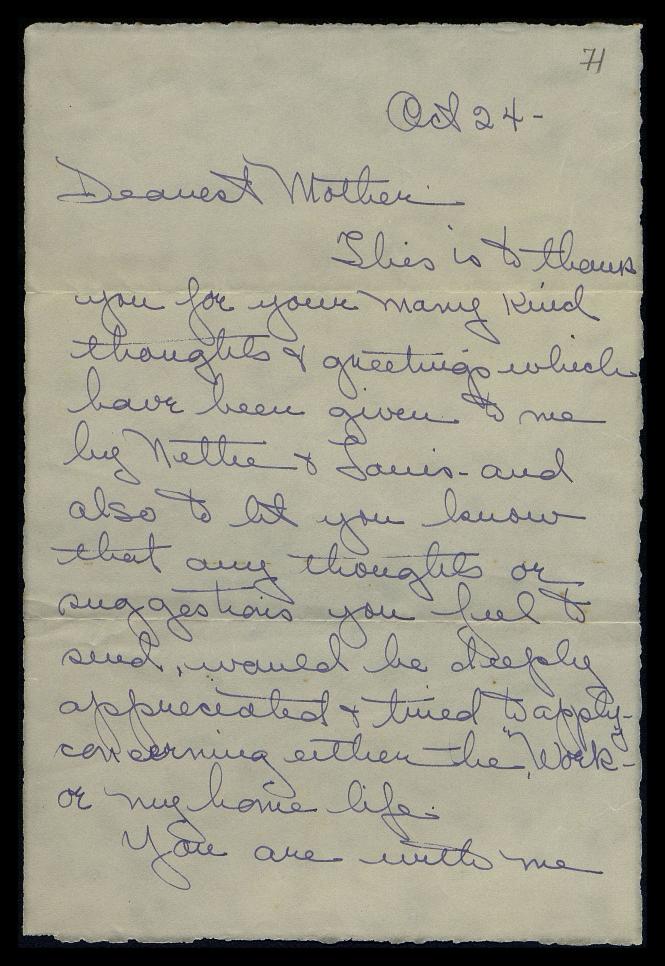 71
Oct 24-
Dearest Mother.
This is to thank
you for your many kind
thoughts & greetings which
have been given to me
by Nettie & Louis- and
also to let you know
that any thoughts or
suggestions you feel to
send, would be deeply
appreciated & tried to apply-
concerning either the "Work"-
or my home life.
You are with me